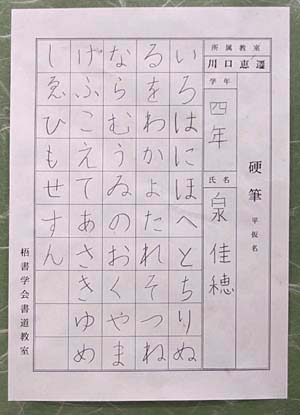 硬筆 平仮名
所属教室
川口恵
学年
四年
氏名
泉佳穂
いろはにほへとちりぬ
るをわかよたれそつね
ならむうゐのおくやま
げふこえてあさきゆめ
しゑひもせすん
梧書学会書道教室